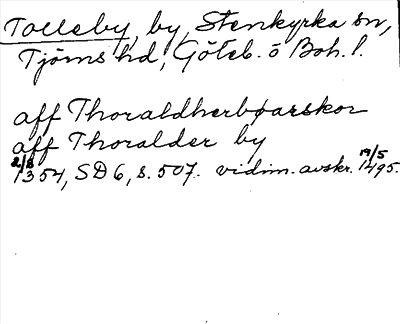 Tolleby, by, Stenkyrka sn,
Tjörns hd, Göteb. o Boh. l.
aff Thoraldherbøarskor
aff Thoralder by
2/8 1354, SD 6, s. 507. vidim. avskr. 19/5 1495.